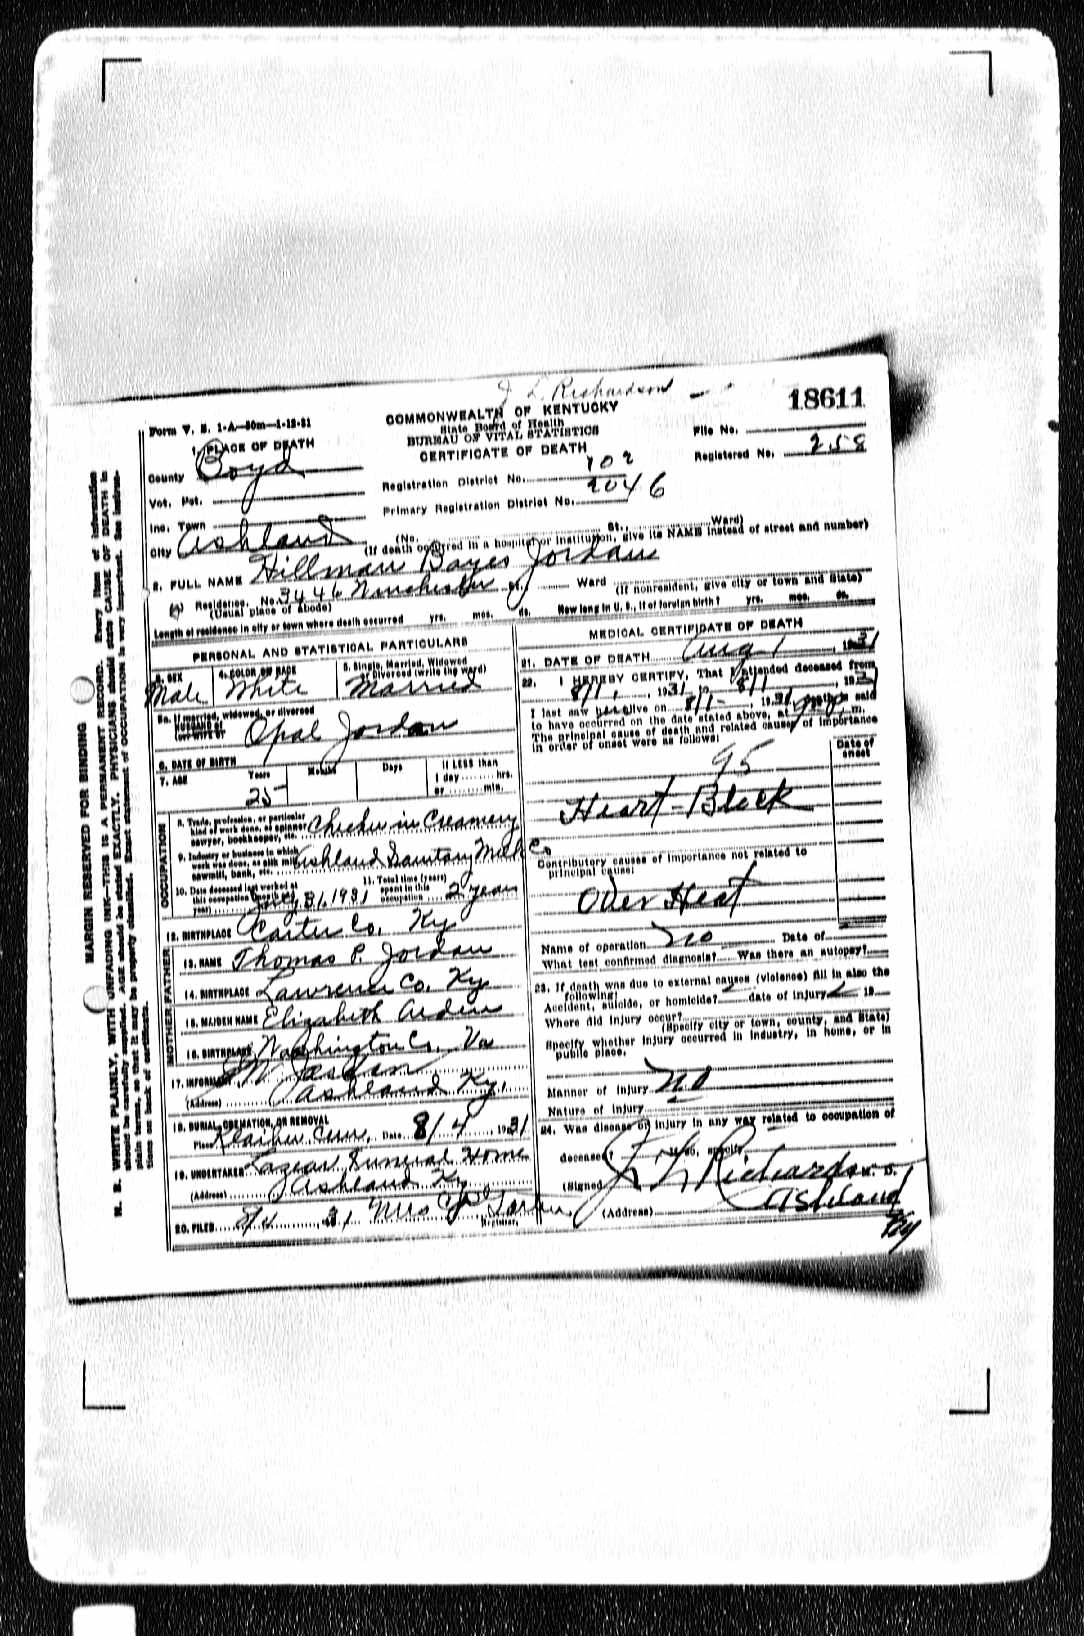 J. L. Richardson
18611
Form V. S. 1-A—50m—1-12-31
COMMONWEALTH OF KENTUCKY
State Board of Health
BUREAU OF VITAL STATISTICS
CERTIFICATE OF DEATH
File No.
Registered No. 258
1. PLACE OF DEATH
County Boyd
Vot. Pct.
Inc. Town
City Ashland
Registration District No. 102
Primary Registration District No. 2046
(No. St., Ward)
(If death occurred in a hospital or institution, give its NAME instead of street and number)
2. FULL NAME Hillman Bayes Jordan
(a) Residence. No. 3446 Winchester St., Ward
(Usual place of abode) (If nonresident, give city or town and State)
Length of residence in city or town where death occurred yrs. mos. ds. How long in U. S., if of foreign birth? yrs. mos. ds.
PERSONAL AND STATISTICAL PARTICULARS
3. SEX Male
4. COLOR OR RACE White
5. Single, Married, Widowed
or Divorced (write the word)
Married
5a. If married, widowed, or divorced
HUSBAND of
(or) WIFE of Opal Jordan
6. DATE OF BIRTH
7. AGE Years Months Days If LESS than
1 day hrs.
or min.
25
OCCUPATION
8. Trade, profession, or particular
kind of work done, as spinner
sawyer, bookkeeper, etc. Checker in Creamery
9. Industry or business in which
work was done, as silk mill
sawmill, bank, etc. Ashland Sanitary Milk Co
10. Date deceased last worked at
this occupation
year) July 31, 1931
11. Total time (years)
spent in this
occupation 2 years
12. BIRTHPLACE Carter Co. Ky
FATHER
13. NAME Thomas P. Jordan
14. BIRTHPLACE Lawrence Co. Ky
MOTHER
15. MAIDEN NAME Elizabeth Arden
16. BIRTHPLACE Washington Co. Va
17. INFORMANT W. Jordan
(Address) Ashland Ky.
18. BURIAL, CREMATION, OR REMOVAL
Place Cem. Date 8/4, 1931
19. UNDERTAKER Lazear Funeral Home
(Address) Ashland Ky
20. FILED 31 Mrs Registrar.
MEDICAL CERTIFICATE OF DEATH
21. DATE OF DEATH Aug 1, 1931
22. I HEREBY CERTIFY, That I attended deceased from
8/1, 1931 to 8/1, 1931
I last saw alive on 8/1-, 1931, death is said
to have occurred on the date stated above, at m.
The principal cause of death and related causes of importance
in order of onset were as follows:
Date of
onset
95
Heart-Block
Contributory causes of importance not related to
principal cause:
Over Heat
Name of operation no Date of
What test confirmed diagnosis? Was there an autopsy?
23. If death was due to external causes (violence) fill in also the
following:
Accident, suicide, or homicide? date of injury 19
Where did injury occur?
(Specify city or town, county, and State)
Specify whether injury occurred in industry, in home, or in
public place.
Manner of injury no
Nature of injury
24. Was disease or injury in any way related to occupation of
deceased? If so, specify
(Signed) J. L. Richardson M. D.
(Address) Ashland
Ky
MARGIN RESERVED FOR BINDING
N. B. WRITE PLAINLY, WITH UNFADING INK—THIS IS A PERMANENT RECORD. Every item of information
should be carefully supplied. AGE should be stated EXACTLY. PHYSICIANS should state CAUSE OF DEATH in
plain terms, so that it may be properly classified. Exact statement of OCCUPATION is very important. See instruc-
tions on back of certificate.